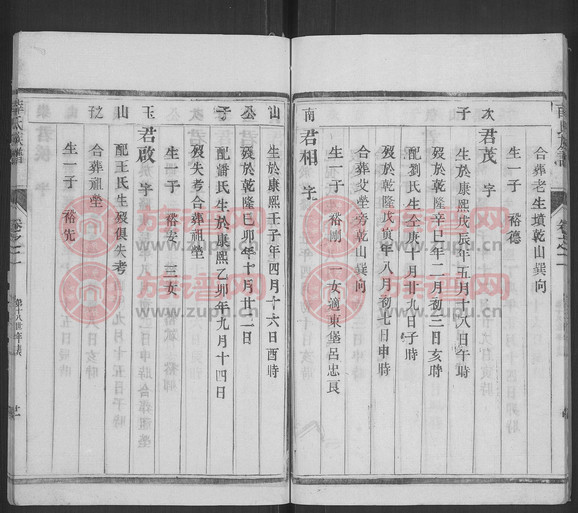 合葬老生墳乾山巽向
生一子 裕德
次子 君茂 字
生於康熙戊辰年五月十八日午時
歿於乾隆辛巳年二月初三日亥時
配劉氏生仝庚十月廿九日子時
歿於乾隆戊寅年八月初七日申時
合葬父塋旁乾山巽向
生一子 裕剛 一女適東堡呂忠良
南山公子 君相 字
生於康熙壬子年四月十六日酉時
歿於乾隆己卯年十月廿二日
配潘氏生於康熙乙卯年九月十四日
歿失考合葬祖塋
生一子 裕安 三女
玉山之 君啟 字
配王氏生歿俱失考
合葬祖塋
生一子 裕先
氏族譜
卷之二
第十八世年表
万族谱网
www.zupu.cn